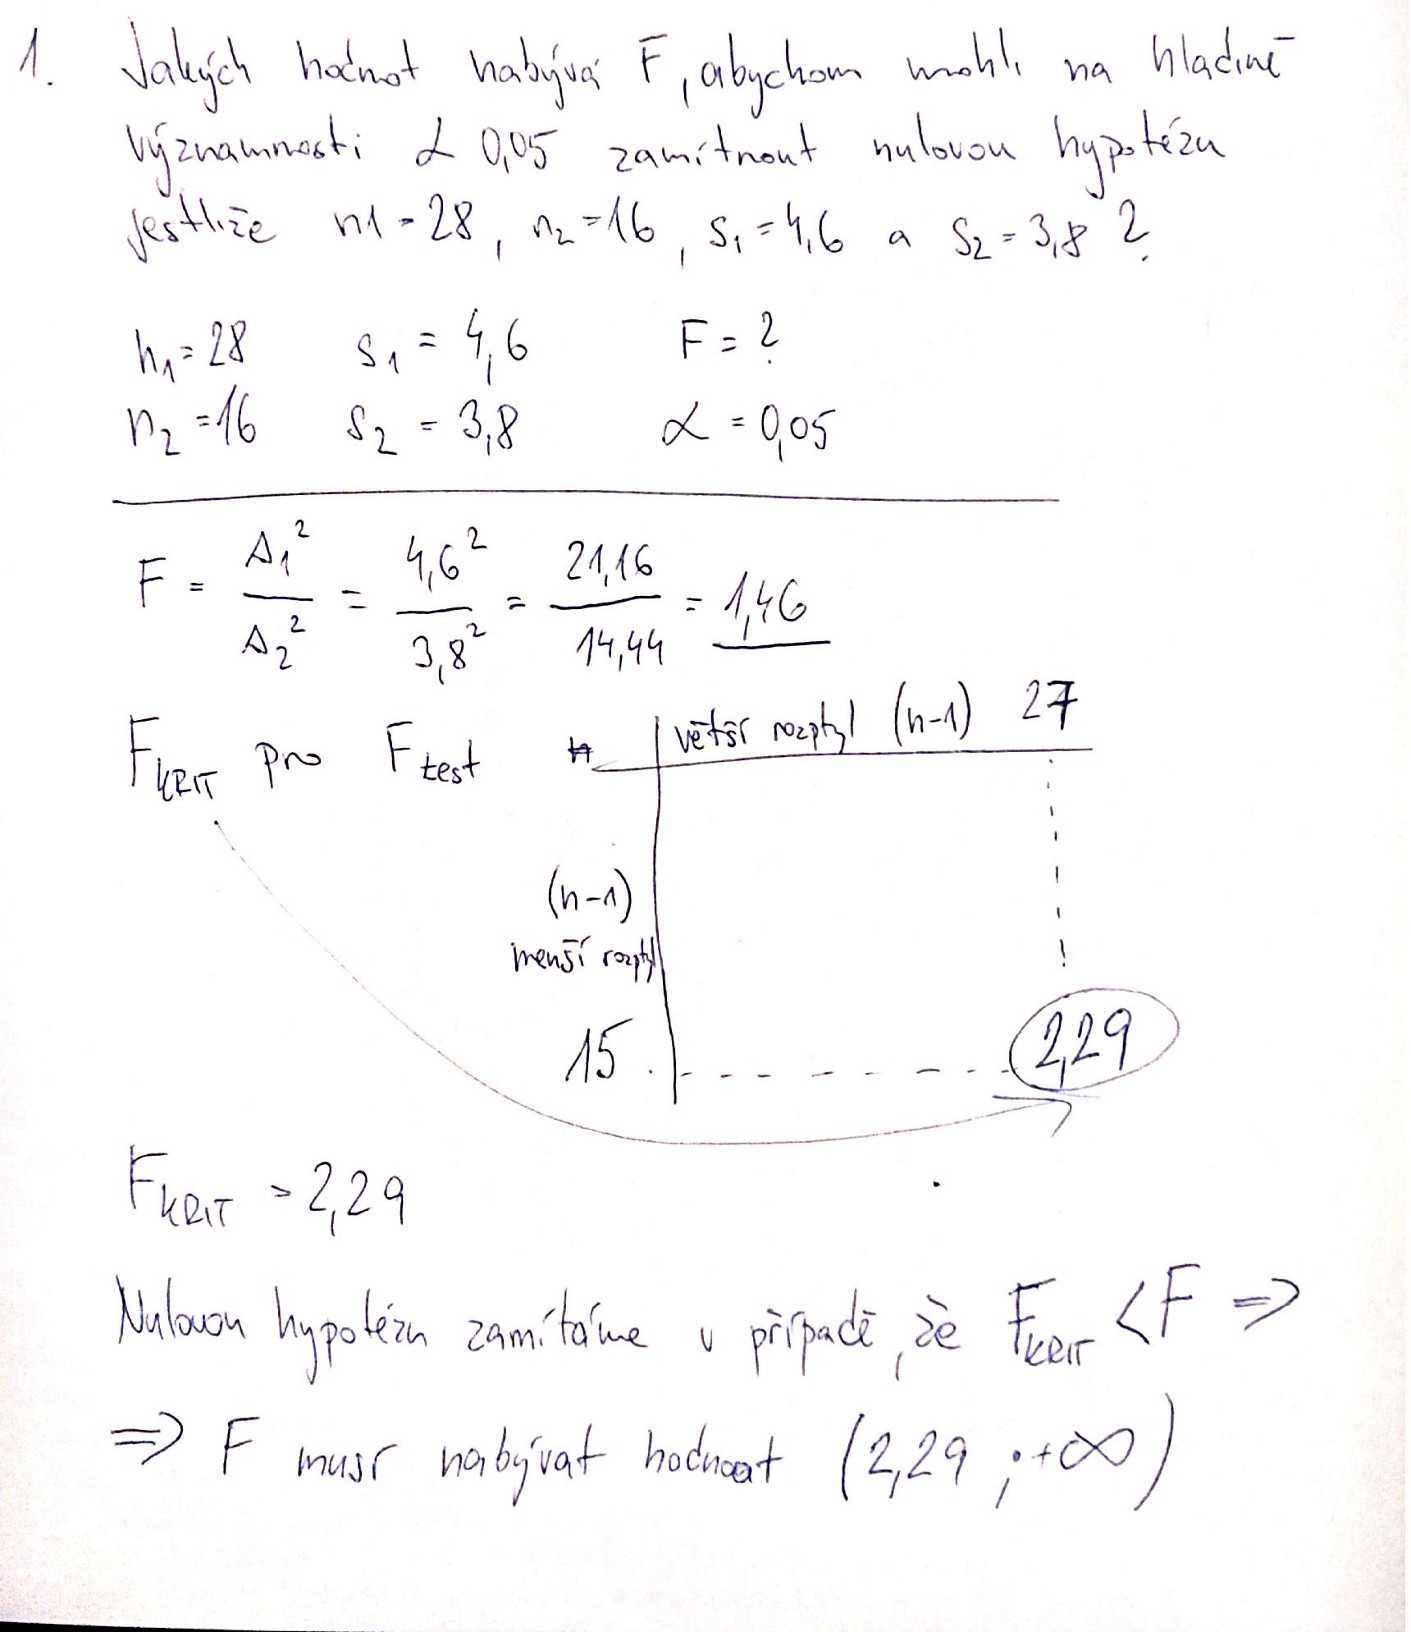 1. Jakých hodnot nabývá F, abychom mohli na hladině
významnosti α 0,05 zamítnout nulovou hypotézu
jestliže n1 = 28, n₂ = 16, s₁ = 4,6 a s₂ = 3,8 ?
n₁ = 28 s₁ = 4,6 F = ?
n₂ = 16 s₂ = 3,8 α = 0,05
F = s₁²/s₂² = 4,6²/3,8² = 21,16/14,44 = 1,46
F KRIT pro F test
větší rozptyl (n-1) 27
(n-1)
menší rozptyl
15 2,29
F KRIT = 2,29
Nulovou hypotézu zamítáme v případě, že F KRIT < F =>
=> F musí nabývat hodnot (2,29 ; +∞)